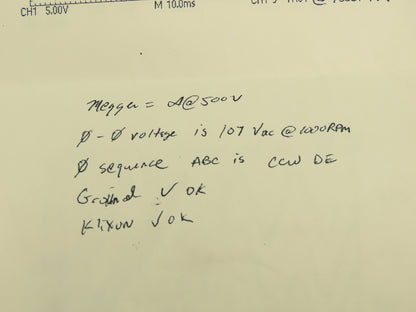 CH1 5.00V M 10.0ms CH1
Megger = ∞@500V
Ø-Ø voltage is 107 Vac @1000RPM
Ø sequence ABC is CCW DE
Ground √ OK
Klixon √ OK